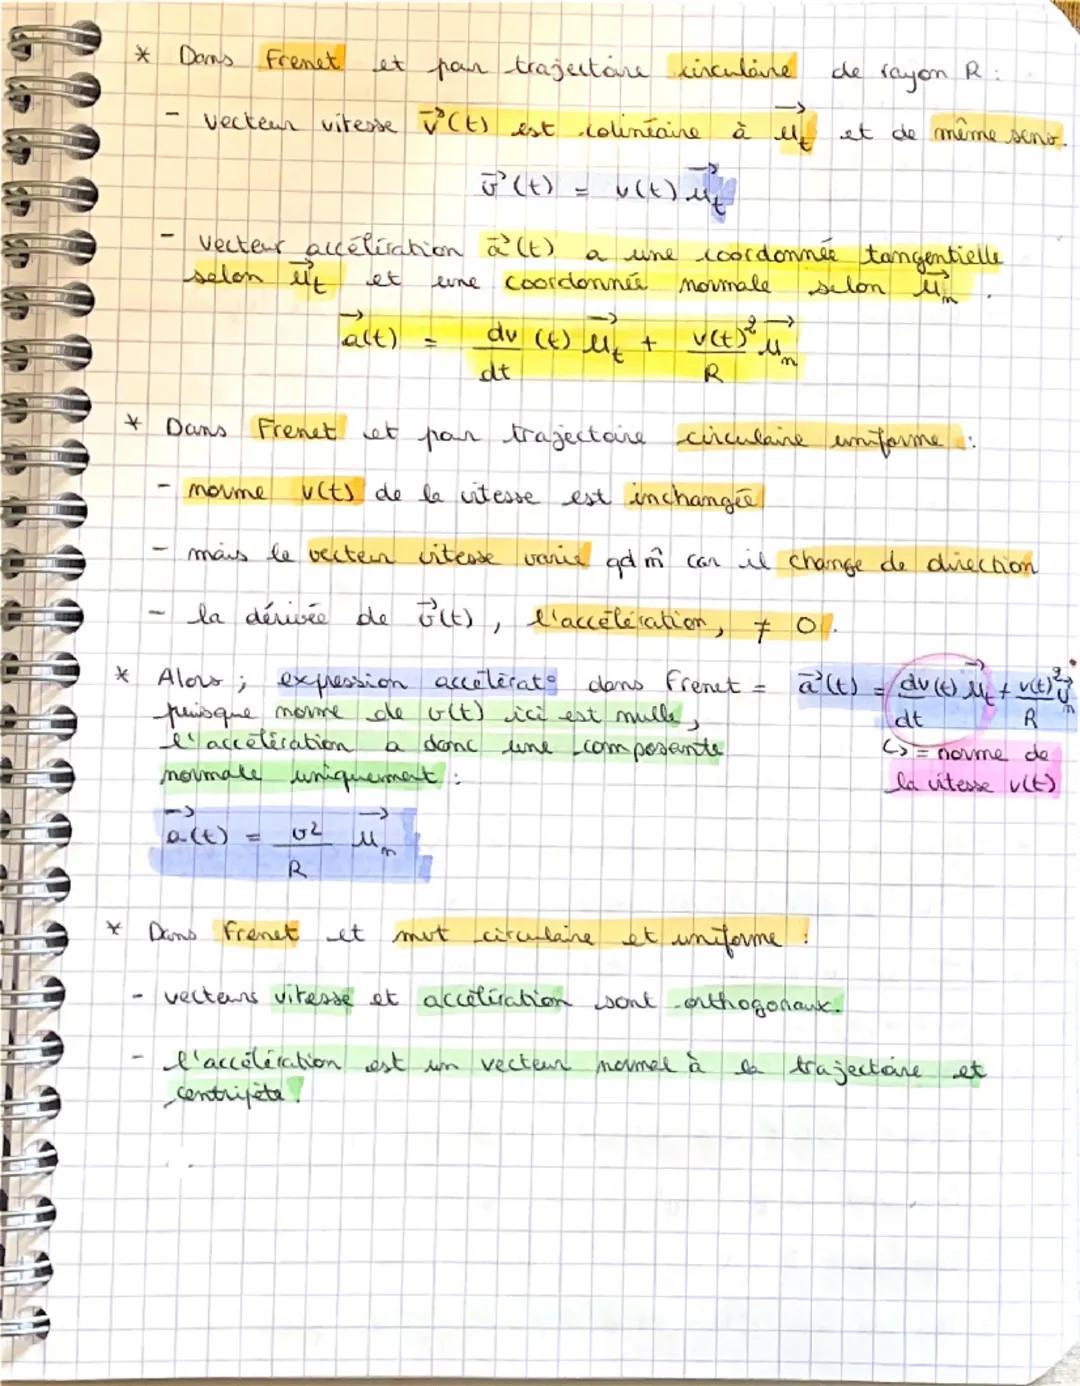 * Dans Frenet et par trajectoire circulaire de rayon R :
- vecteur vitesse v⃗(t) est colinéaire à u⃗t et de même sens.
v⃗(t) = v(t) u⃗t
- vecteur accélération a⃗(t) a une coordonnée tangentielle
selon u⃗t et une coordonnée normale selon u⃗n.
a⃗(t) = dv/dt (t) u⃗t + v(t)²/R u⃗n
* Dans Frenet et par trajectoire circulaire uniforme :
- norme v(t) de la vitesse est inchangée
- mais le vecteur vitesse varie qd m̂ car il change de direction
- la dérivée de v⃗(t), l'accélération, ≠ 0.
* Alors ; expression accélérat° dans Frenet = a⃗(t) = dv(t)/dt u⃗t + v(t)²/R u⃗n
puisque norme de v(t) ici est nulle,
l'accélération a donc une composante
normale uniquement :
↳ = norme de
la vitesse v(t)
a⃗(t) = v²/R u⃗n
* Dans Frenet et mvt circulaire et uniforme :
- vecteurs vitesse et accélération sont orthogonaux.
- l'accélération est un vecteur normal à la trajectoire et
centripète.